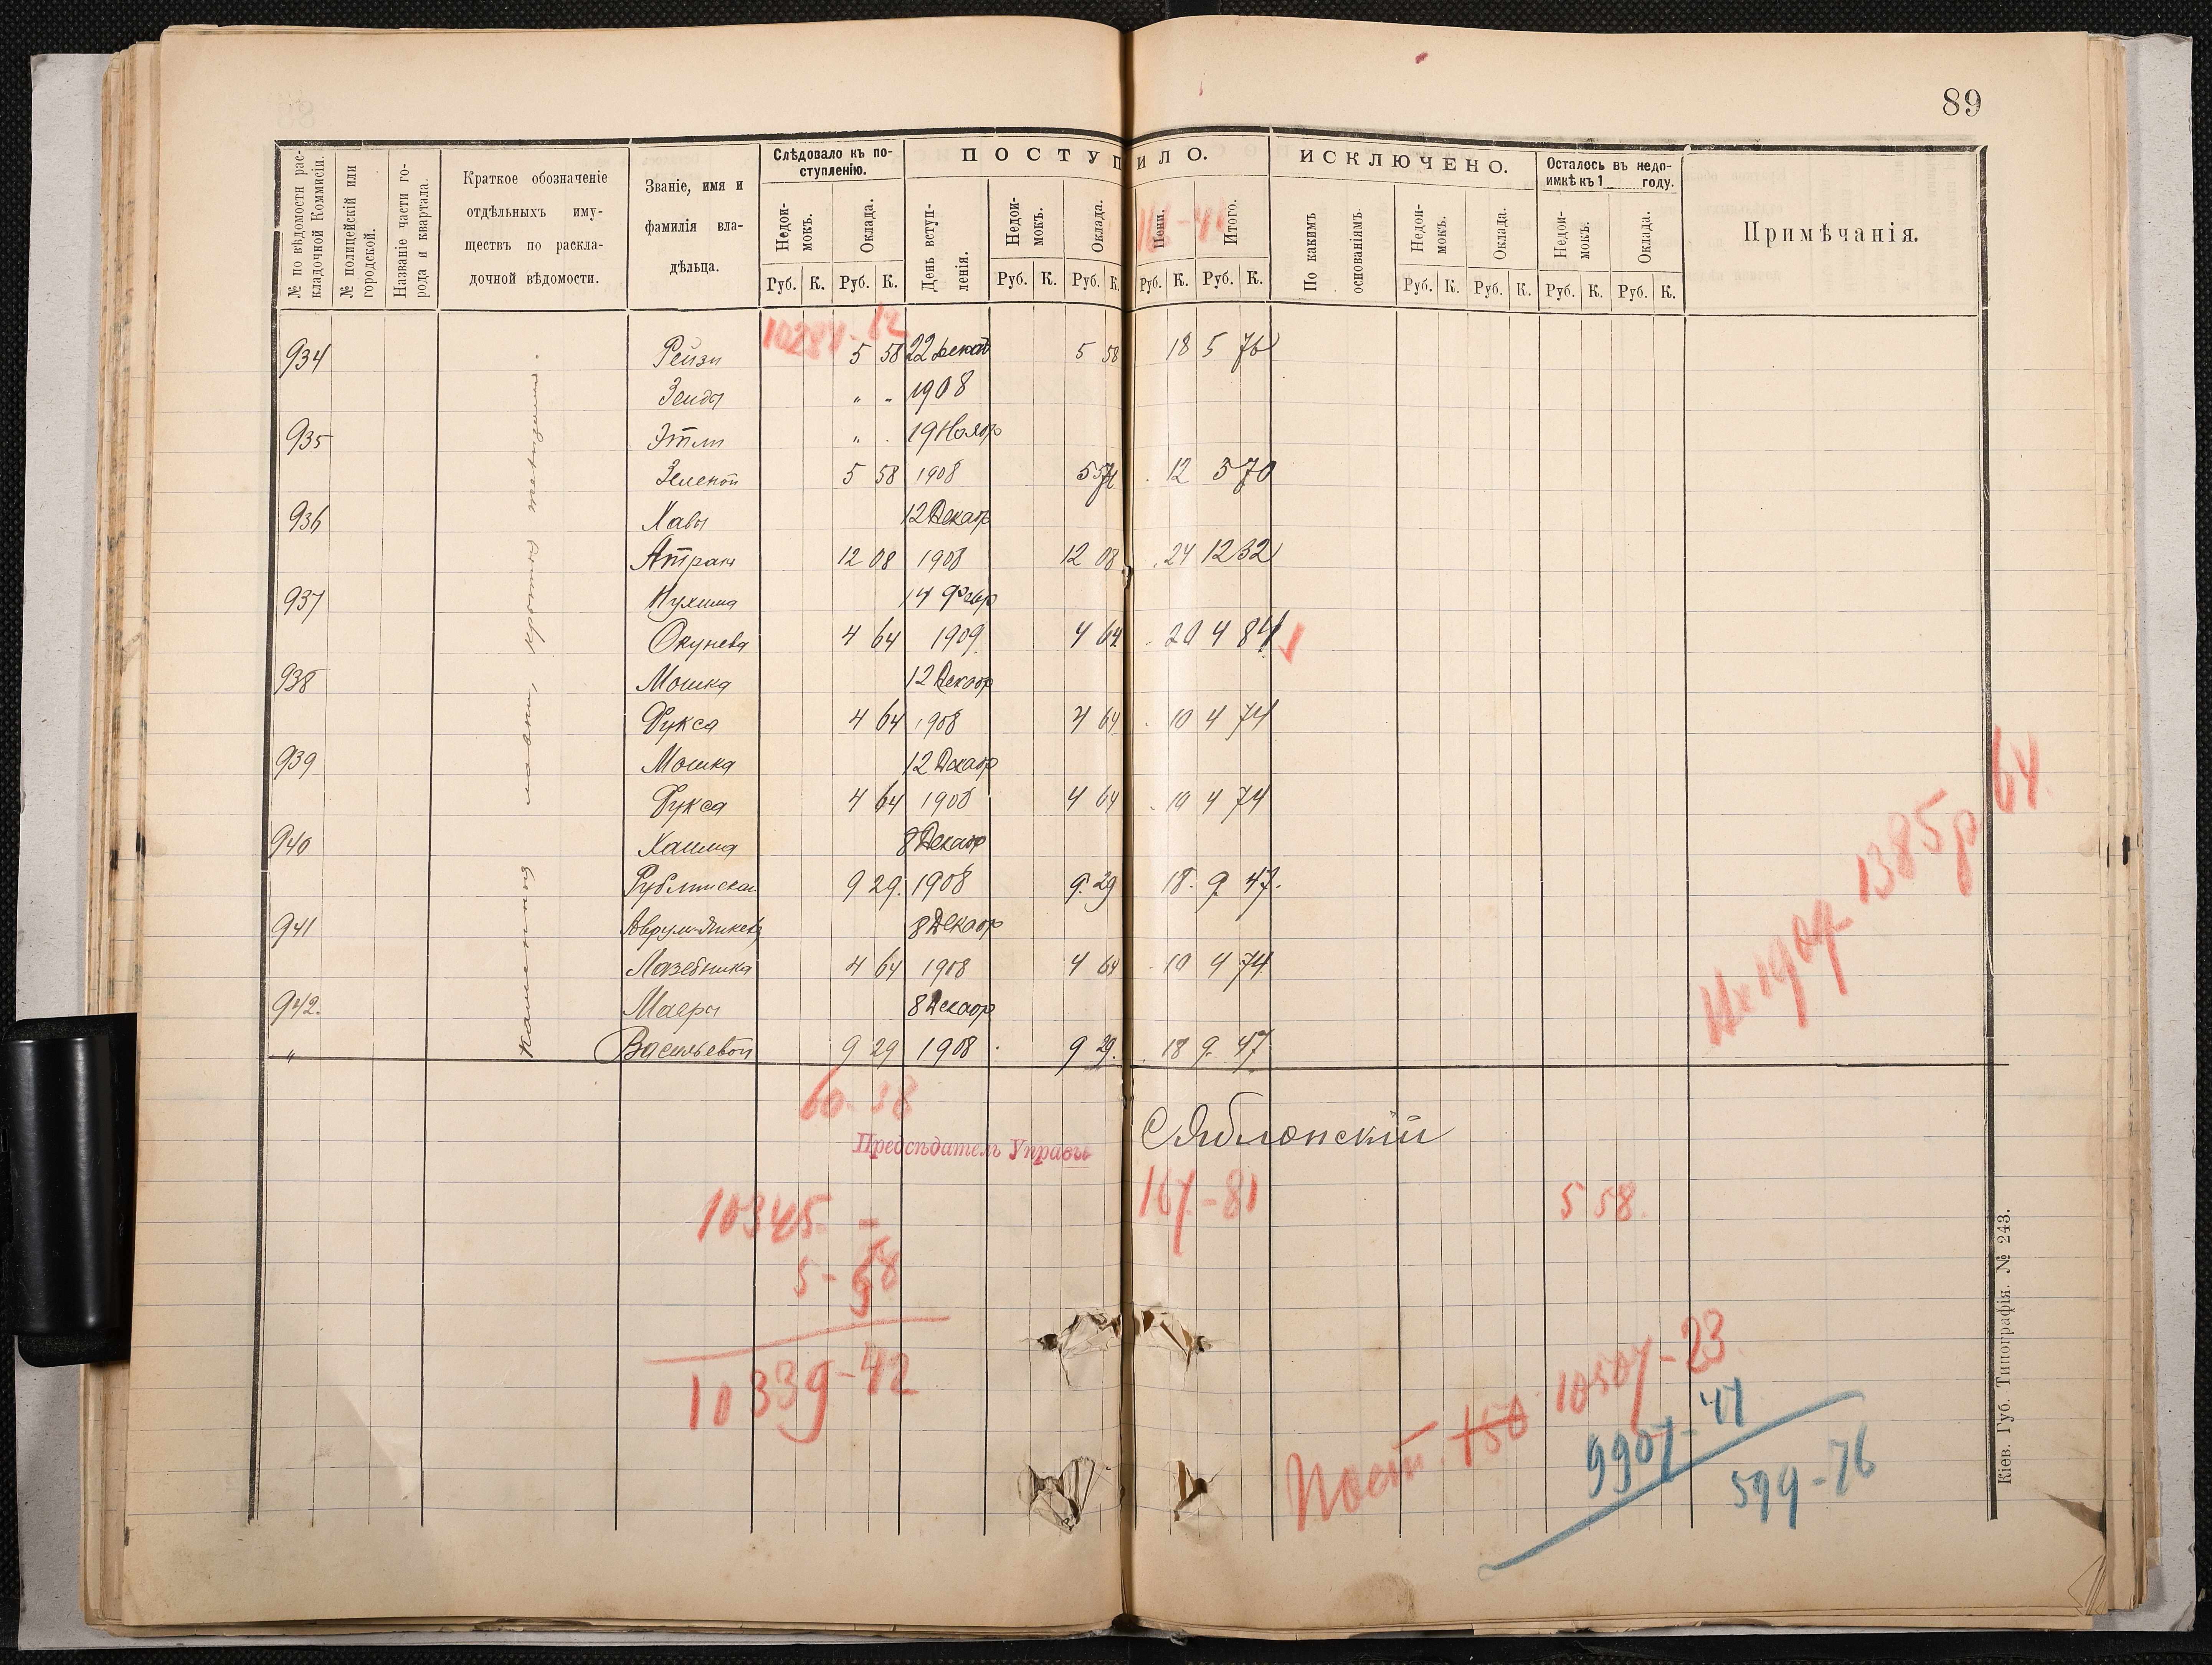 89
№ по вѣдомости рас-
кладочной Комисіи.
№ полицейскій или
городской.
Названіе части го-
рода и квартала.
Краткое обозначеніе
отдѣльныхъ иму-
ществъ по раскла-
дочной вѣдомости.
Званіе, имя и
фамилія вла-
дѣльца.
Слѣдовало къ по-
ступленію.
Недои-
мокъ.
Оклада.
ПОСТУПИЛО.
День вступ-
ленія.
Недои-
мокъ.
Оклада.
Пени.
Итого.
ИСКЛЮЧЕНО.
По какимъ
основаніямъ.
Недои-
мокъ.
Оклада.
Осталось въ недо-
имкѣ къ 1 году.
Недои-
мокъ.
Оклада.
Примѣчанія.
Руб. К. Руб. К. Руб. К. Руб. К. Руб. К. Руб. К. Руб. К. Руб. К. Руб. К. Руб. К.
934 Рейзи 5 58 22 5 58 18 5 76
Зеида „ „ 1908
935 Этли „ 19 Ноябр
Зеленой 5 58 1908 5 58 12 5 70
936 Хавы 12 Декабр
12 08 1908 12 08 24 12 32
937 Нухима 14 Февр
Окунева 4 64 1909 4 64 20 4 84
938 Мошка 12 Декабр
Фукса 4 64 1908 4 64 10 4 74
939 Мошка 12 Декабр
Фукса 4 64 1908 4 64 10 4 74
940 Хаима 8 Декабр
9 29 1908 9 29 18 9 47
941 Аврум-Янкеля 8 Декабр
Лазебника 4 64 1908 4 64 10 4 74
942. 8 Декабр
„ Васильевой 9 29 1908 9 29 18 9 47
60-38
Предсѣдатель Управы
С Яблонскій
10345 -
5-58
10339-42
167-81
5 58.
1385р 64
Пост. 10507-23
9907-47
599-76
Кіев. Губ. Типографія. № 243.